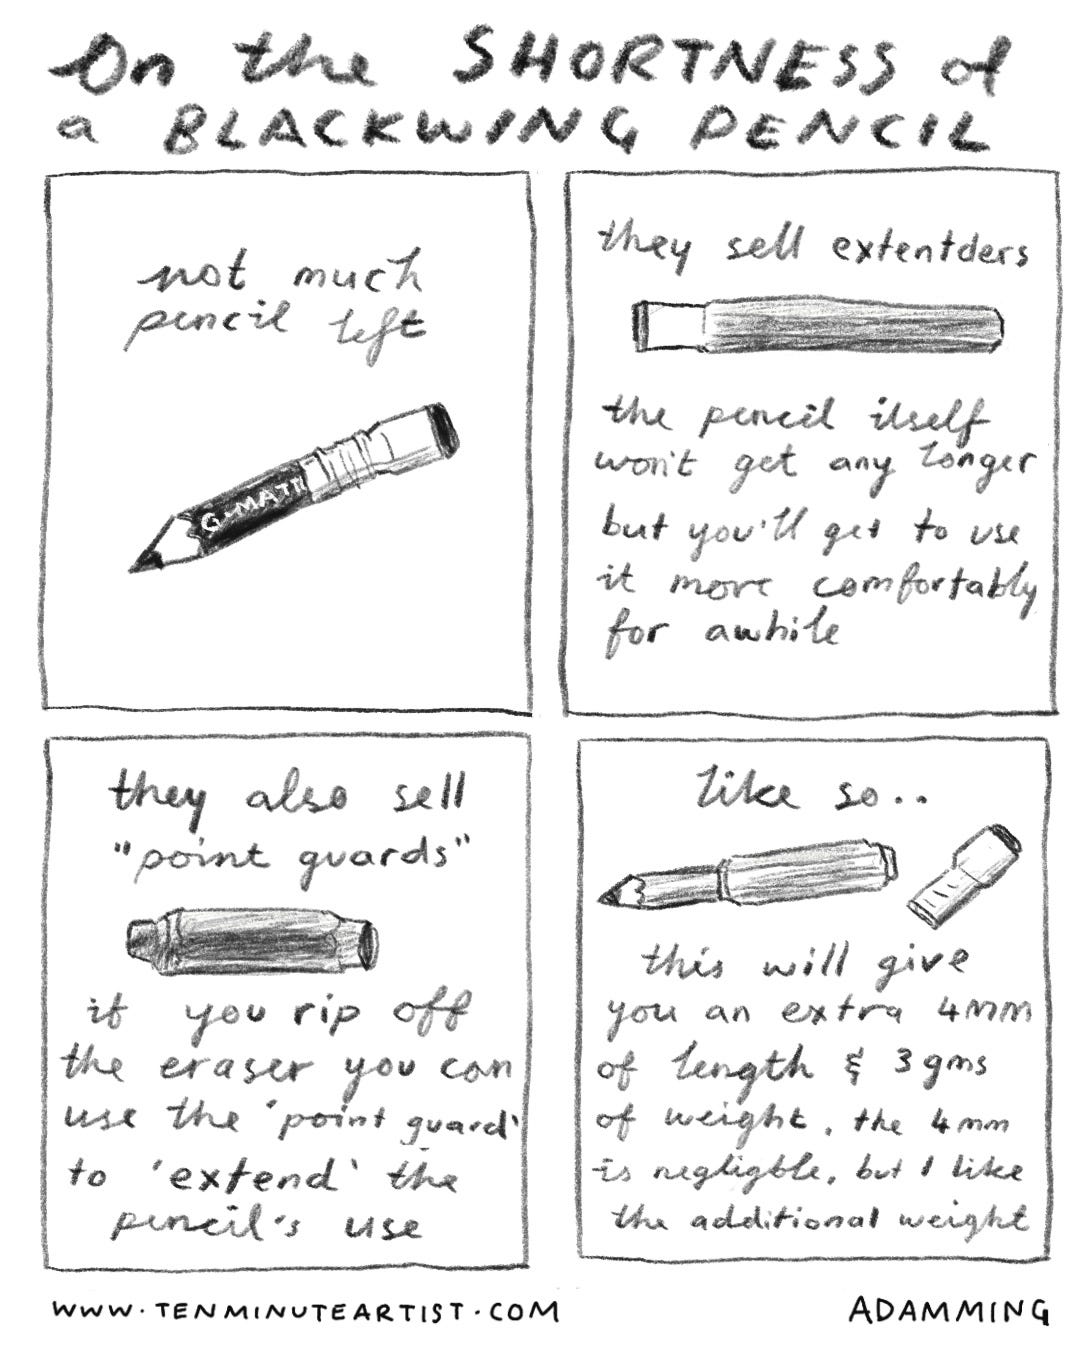 On the SHORTNESS of
a BLACKWING PENCIL
not much
pencil left
G-MATI
they sell extentders
the pencil itself
won't get any longer
but you'll get to use
it more comfortably
for awhile
they also sell
"point guards"
if you rip off
the eraser you can
use the 'point guard'
to 'extend' the
pencil's use
like so..
this will give
you an extra 4mm
of length & 3gms
of weight, the 4mm
is negligble, but I like
the additional weight
WWW.TENMINUTEARTIST.COM
ADAMMING